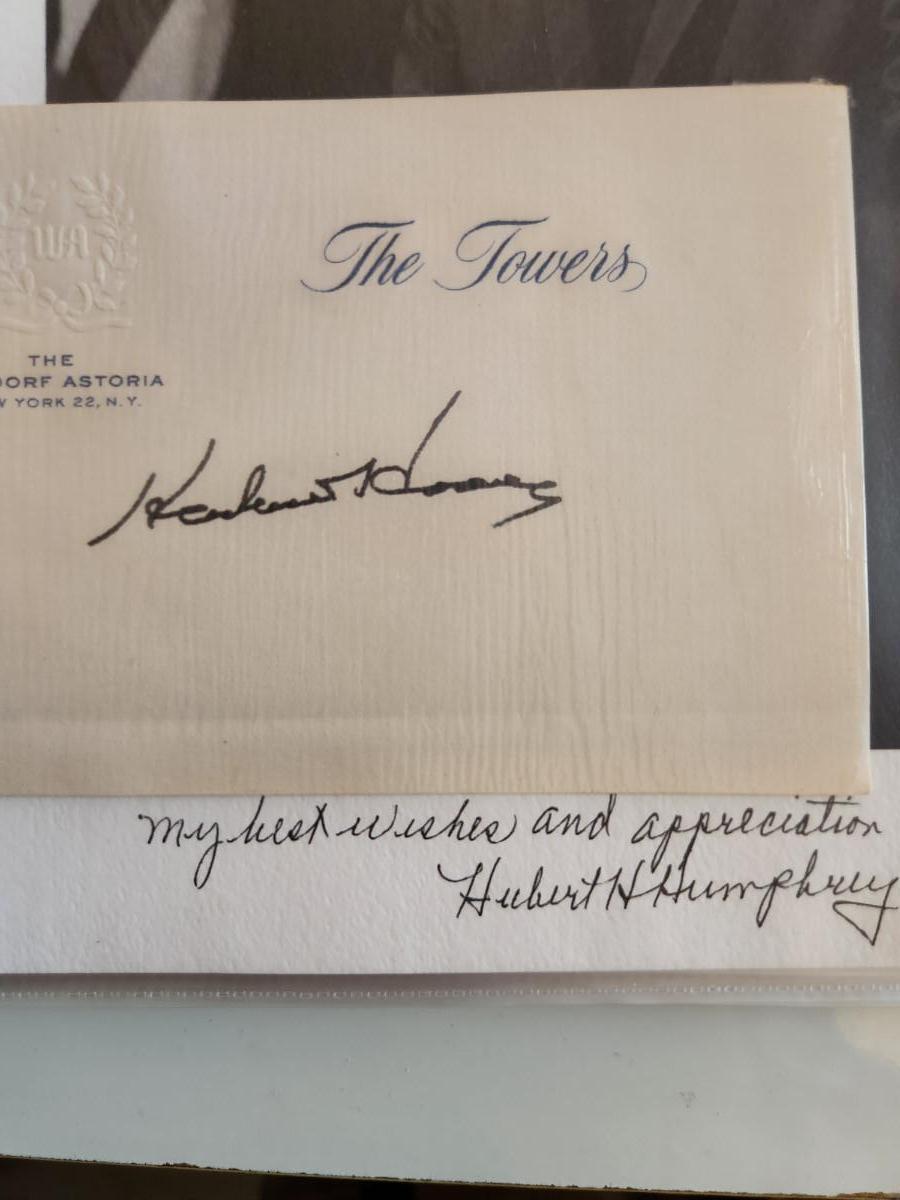 WA
The Towers
THE
DORF ASTORIA
W YORK 22, N.Y.
Herbert Hoover
My best wishes and appreciation
Hubert H Humphrey